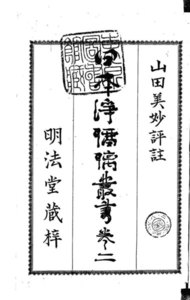 山田美妙評註
日本淨瑠璃叢書卷二
明法堂蔵梓